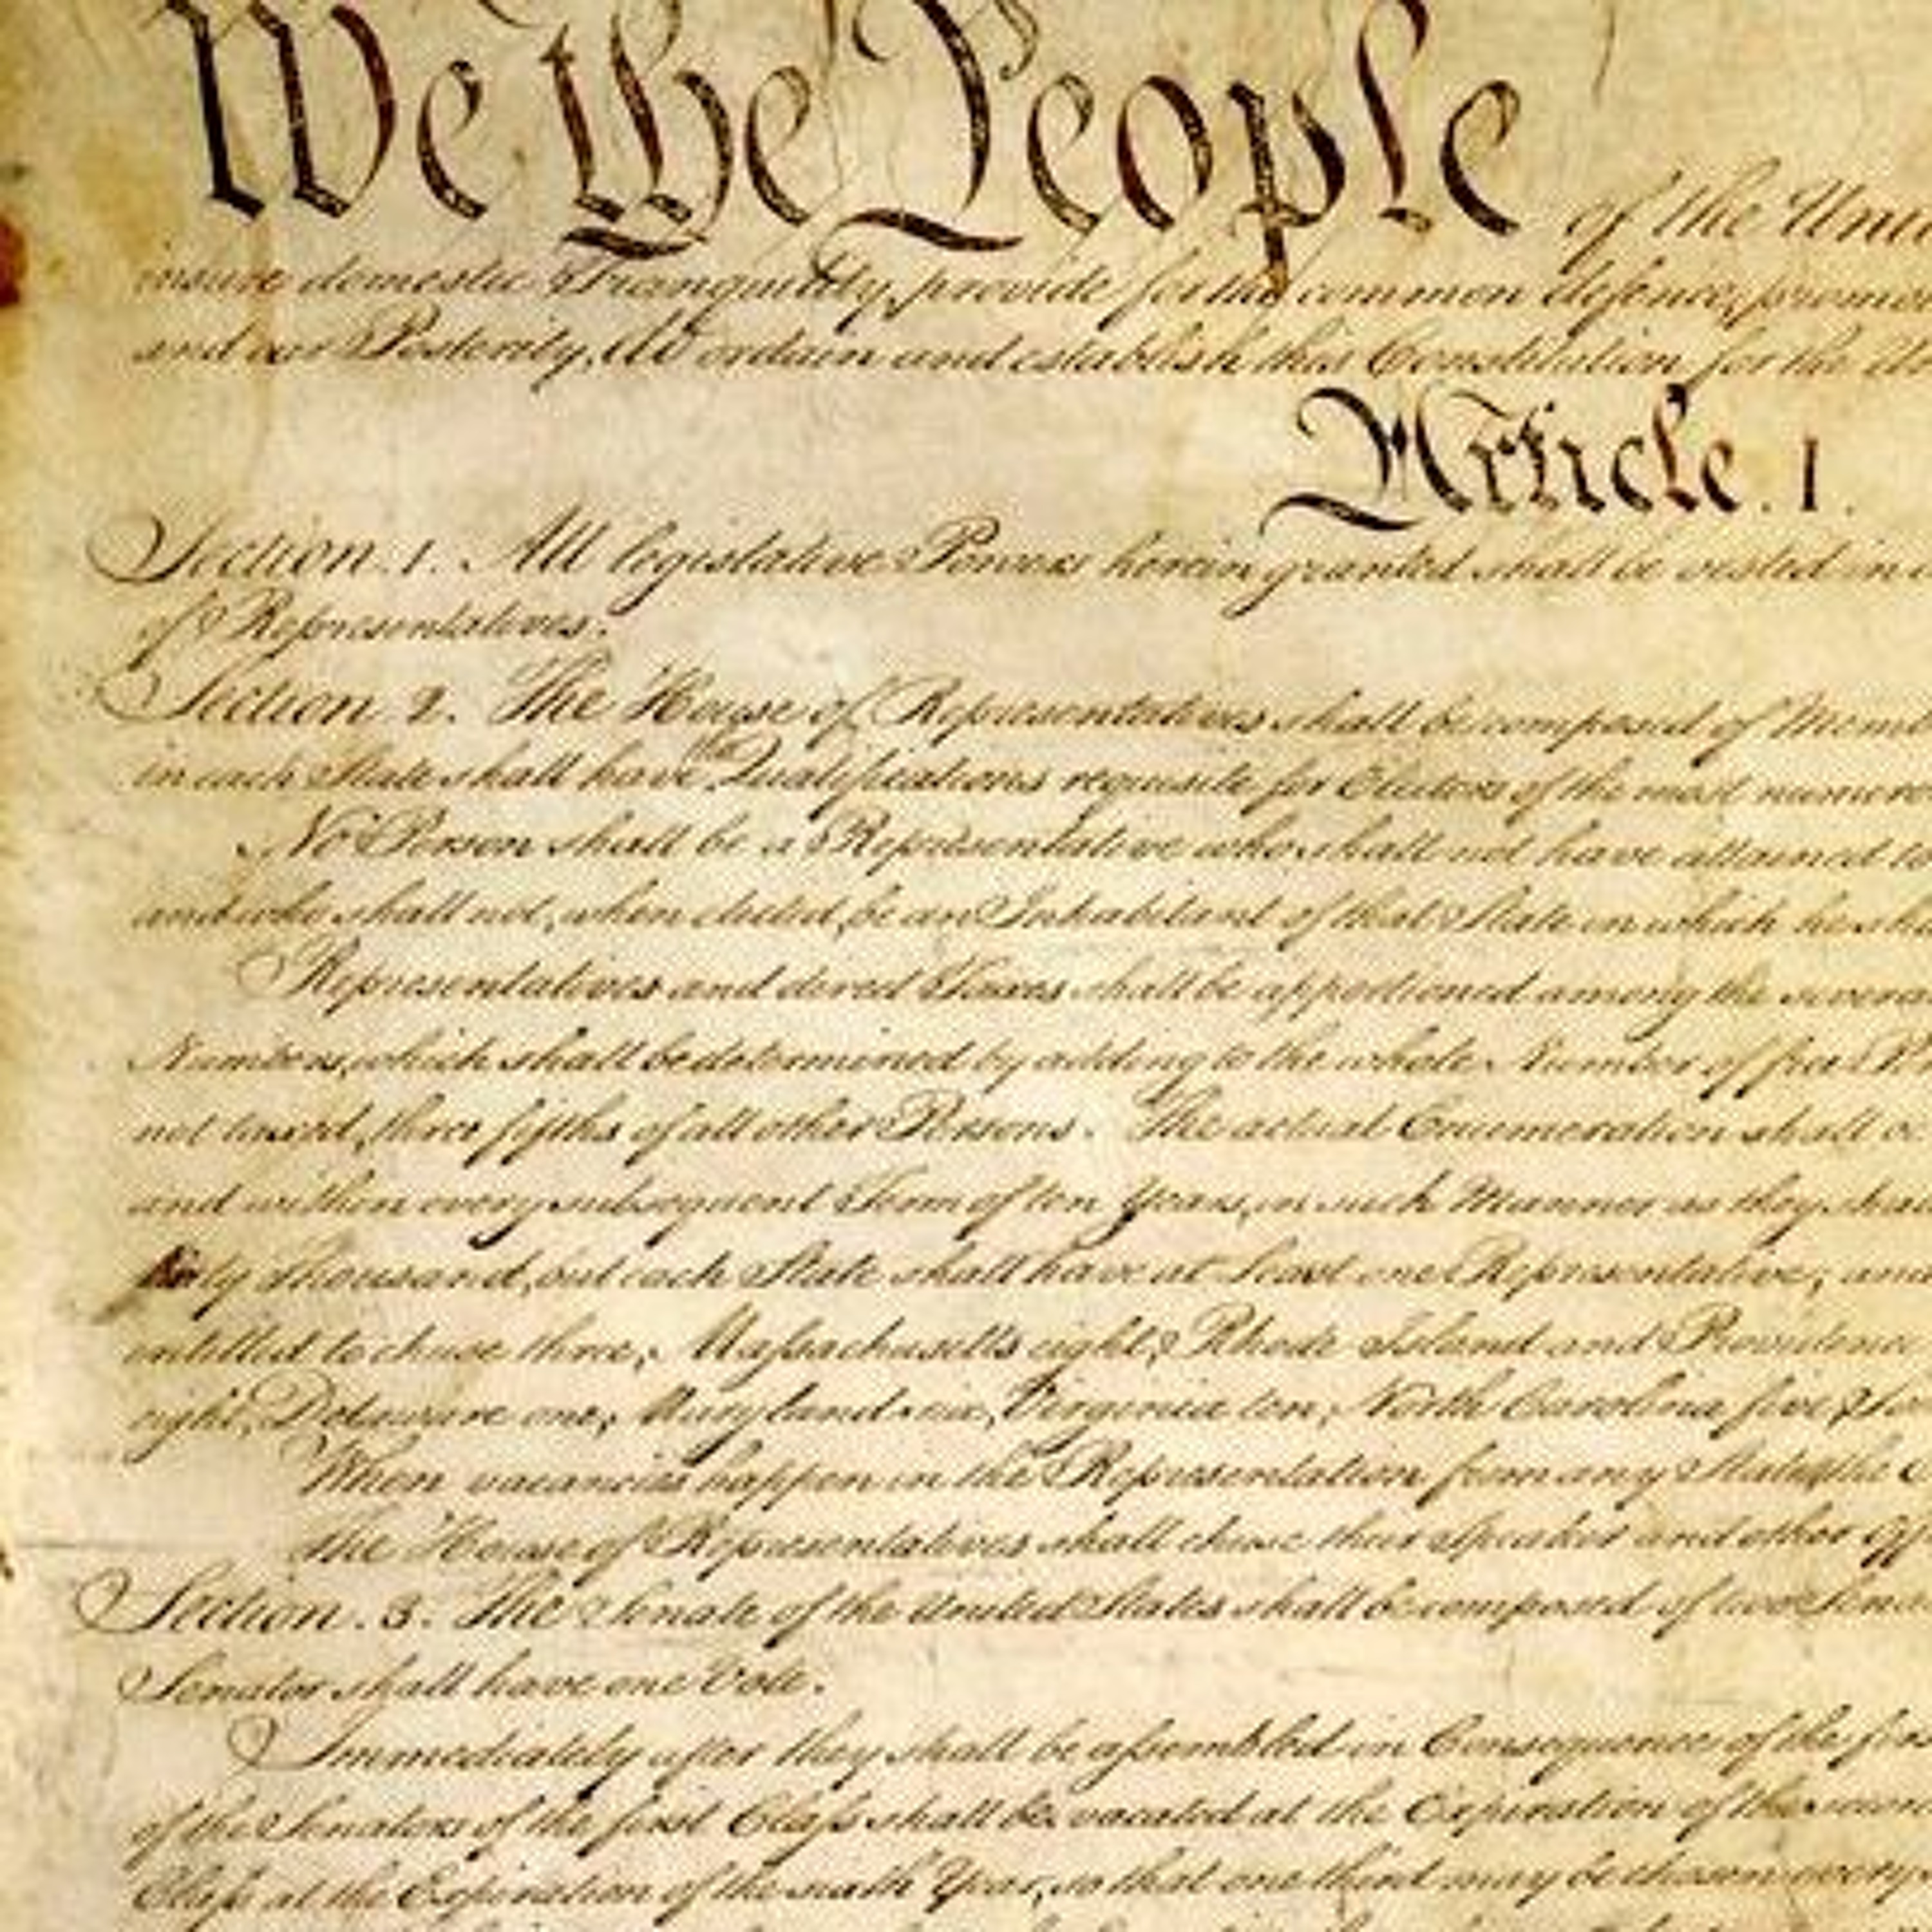 We the People of the Uni
insure domestic Tranquility, provide for the common defence, promo
and our Posterity, do ordain and establish this Constitution for the Un
Article. I.
Section. 1. All legislative Powers herein granted shall be vested in a
of Representatives.
Section. 2. The House of Representatives shall be composed of Memb
in each State shall have the Qualifications requisite for Electors of the most numero
No Person shall be a Representative who shall not have attained to
and who shall not, when elected, be an Inhabitant of that State in which he sha
Representatives and direct Taxes shall be apportioned among the severa
Numbers, which shall be determined by adding to the whole Number of free P
not taxed, three fifths of all other Persons. The actual Enumeration shall b
and within every subsequent Term of ten Years, in such Manner as they shal
thirty Thousand, but each State shall have at Least one Representative; and
entitled to chuse three, Massachusetts eight, Rhode Island and Providence
eight, Delaware one, Maryland six, Virginia ten, North Carolina five, So
When vacancies happen in the Representation from any State, the E
The House of Representatives shall chuse their Speaker and other Off
Section. 3. The Senate of the United States shall be composed of two Sena
Senator shall have one Vote.
Immediately after they shall be assembled in Consequence of the firs
of the Senators of the first Class shall be vacated at the Expiration of the secon
Class at the Expiration of the sixth Year, so that one third may be chosen every